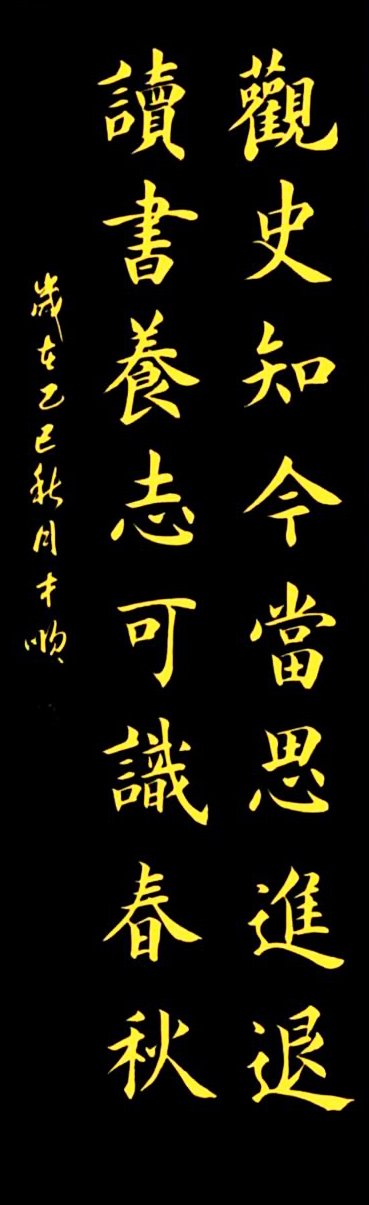 觀史知今當思進退
讀書養志可識春秋
歲在乙巳秋月才順